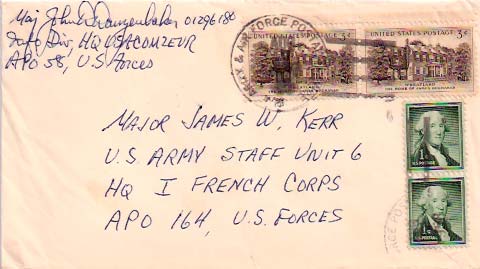 Maj John D. Dangenbaker 01296180
Info Div, HQ USACOMZEUR
APO 58, U.S. Forces
ARMY & AIR FORCE POSTAL
UNITED STATES POSTAGE 3¢
UNITED STATES POSTAGE 3¢
WHEATLAND
THE HOME OF JAMES BUCHANAN
WHEATLAND
THE HOME OF JAMES BUCHANAN
MAJOR JAMES W. KERR
U.S. ARMY STAFF UNIT 6
HQ I FRENCH CORPS
APO 164, U.S. FORCES
1¢
U.S. POSTAGE
1¢
U.S. POSTAGE